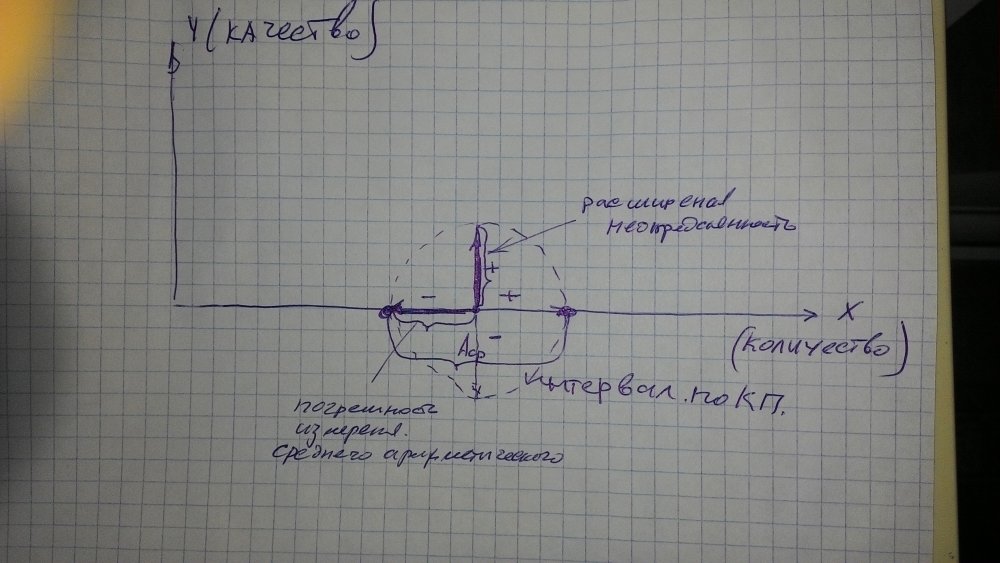 Y (качество)
расширеная
неопределенность
- +
+
X
(количество)
Аср
-
интервал по КП.
погрешность
измерения.
среднего арифметического